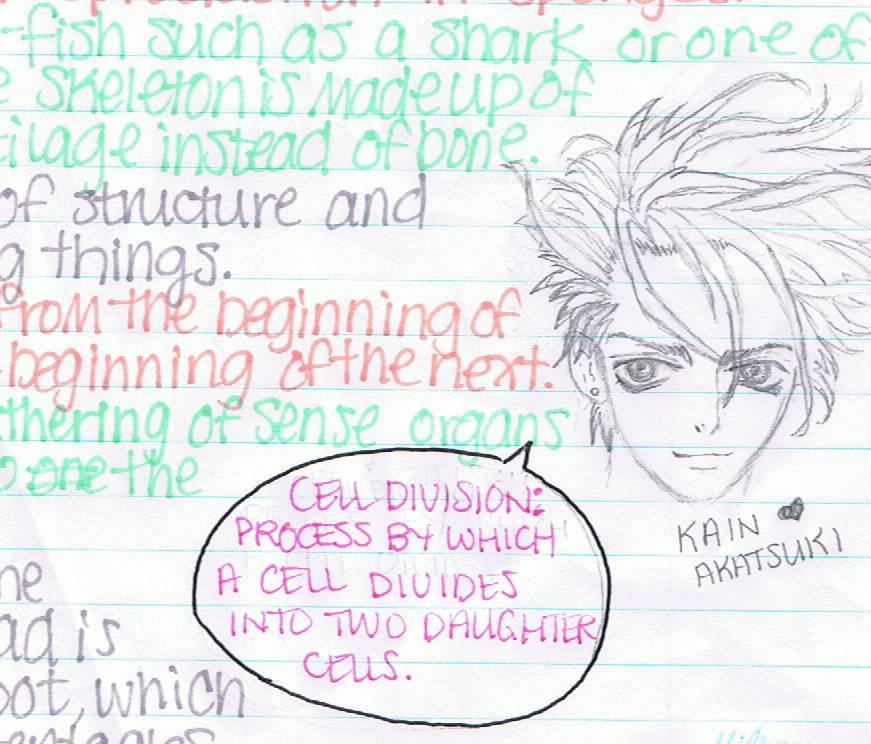 -fish such as a shark or one of
skeleton is made up of
tilage instead of bone.
of structure and
g things.
from the beginning of
beginning of the next.
thering of sense organs
the
CELL DIVISION:
PROCESS BY WHICH
A CELL DIVIDES
INTO TWO DAUGHTER
CELLS.
KAIN
AKATSUKI
ne
ad is
oot, which